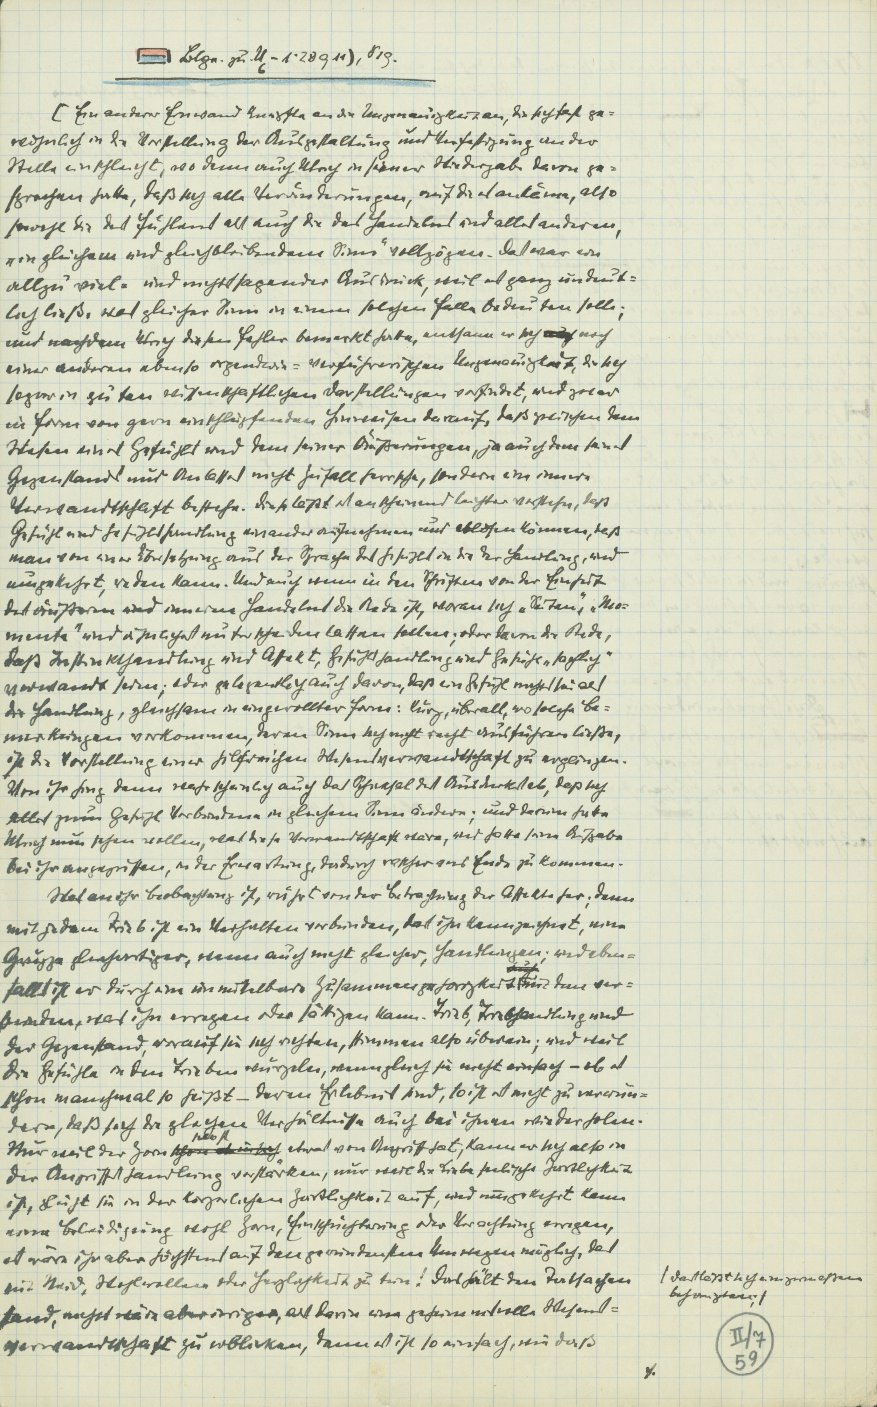 Blge. zu U6 - 1· 28911), S 19.
[ Ein anderer Einwand knüpfte an die Ungenauigkeit an, die sich fast ge=
wöhnlich in die Vorstellung der Ausgestaltung und Verfestigung an der
Stelle einschleicht, wo denn auch Ulrich in seiner Wiedergabe davon ge=
sprochen hatte, daß sich alle Veränderungen, auf die es ankäme, also
sowohl die des Fühlens als auch die des Handelns und alles anderen,
„in gleichem und gleichbleibendem Sinn“ vollzögen. Das war ein
allzu viel= und nichtssagender Ausdruck, weil es ganz undeut=
lich ließ, was gleicher Sinn in einem solchen Falle bedeuten solle;
und nachdem Ulrich diesen Fehler bemerkt hatte, entsann er sich noch
einer anderen ebenso irgendwie= verführerischen Ungenauigkeit, die sich
sogar in guten wissenschaftlichen Darstellungen vorfindet, und zwar
in Form von gern einschlüpfenden Hinweisen darauf, daß zwischen dem
Wesen eines Gefühls und dem seiner Äußerungen, ja auch dem seines
Gegenstands und Anlasses nicht Zufall herrsche, sondern eine innere
Verwandtschaft bestehe. Diese läßt es anscheinend leichter verstehn, daß
Gefühl und Gefühlshandlung einander aufnehmen und ablösen können, daß
man von einer Übersetzung aus der Sprache des Gefühls in die der Handlung, und
umgekehrt, reden kann. Und auch wenn in den Schriften von der Einheit
des äußeren und inneren Handelns die Rede ist, woran sich „Seiten“, „Mo=
mente“ und ähnliches unterscheiden lassen sollen; oder davon die Rede,
daß Instinkthandlung und Affekt, Gefühlshandlung und Gefühl „sachlich“
verwandt seien; oder gelegentlich auch davon, daß ein Gefühl nichts sei als
die Handlung, gleichsam in eingerollter Form: kurz, überall, wo solche Be=
merkungen vorkommen, deren Sinn sich nicht recht ausführen ließe,
ist die Vorstellung einer hilfreichen Wesensverwandtschaft zu ergänzen.
Von ihr hing denn wahrscheinlich auch das Schicksal des Ausdrucks ab, daß sich
alles zum Gefühl Verbundene in gleichem Sinn ändere; und darum hatte
Ulrich nun sehen wollen, was diese Verwandtschaft wäre, und hatte seine Aufgabe
bei ihr angegriffen, in der Erwartung, dadurch rascher ans Ende zu kommen.
Was an ihr Beobachtung ist, rührt von der Betrachtung der Affekte her; denn
mit jedem Trieb ist ein Verhalten verbunden, das ihn kennzeichnet, eine
Gruppe gleichartiger, wenn auch nicht gleicher, Handlungen; und eben=
falls ist er durch eine unmittelbare Zusammengehörigkeit mit dem ver=
bunden, was ihn erregen oder sättigen kann. Trieb, Triebhandlung und
der Gegenstand, worauf sie sich richten, stimmen also überein; und weil
die Gefühle in den Trieben wurzeln, wenngleich sie nicht einfach – ob es
schon manchmal so heißt – deren Erlebnis sind, so ist es nicht zu verwun=
dern, daß sich die gleichen Verhältnisse auch bei ihnen wiederholen.
Nur weil der Zorn selbst etwas von Angriff hat, kann er sich also in
der Angriffshandlung verstärken, nur weil die Liebe seelische Zärtlichkeit
ist, blüht sie in der körperlichen Zärtlichkeit auf, und umgekehrt kann
eine Beleidigung wohl Zorn, Einschüchterung oder Verachtung erregen,
es wäre ihr aber höchstens auf den gewundensten Umwegen möglich, das
mit Neid, Wohlwollen oder Herzlichkeit zu tun! Das hält den Tatsachen
stand, nichts wäre aber irriger, als darin eine geheimnisvolle Wesens=
verwandtschaft zu erblicken, denn es ist so einfach, wie daß
/ das läßt sich einigermaßen
behaupten; /
II/7
59